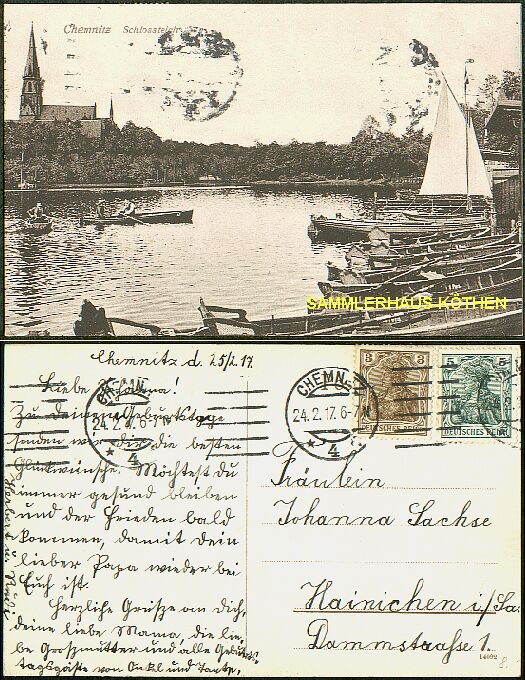 Chemnitz Schlossteich
SAMMLERHAUS KÖTHEN
Chemnitz d. 25/2. 17.
Liebe
Zu deinem Geburtstage
senden wir dir die besten
Glückwünsche. Möchtest Du
immer gesund bleiben
und der Frieden bald
kommen, damit Dein
lieber Papa wieder bei
Euch ist.
Herzliche Grüsze an dich,
deine liebe Mama, die lie-
be Groszmutter und alle Geburts-
tagsgäste von Onkl und Tante.
Herbert u.
CHEMN
24.2.17. 6-7N
* 4
CHEMN
24.2.17. 6-7N
* 4
3 3
DEUTSCHES REICH
5 5
DEUTSCHES REICH
Fräulein
Johanna Sachse
Hainichen i/Sa.
Dammstraasse 1.
14092
8.